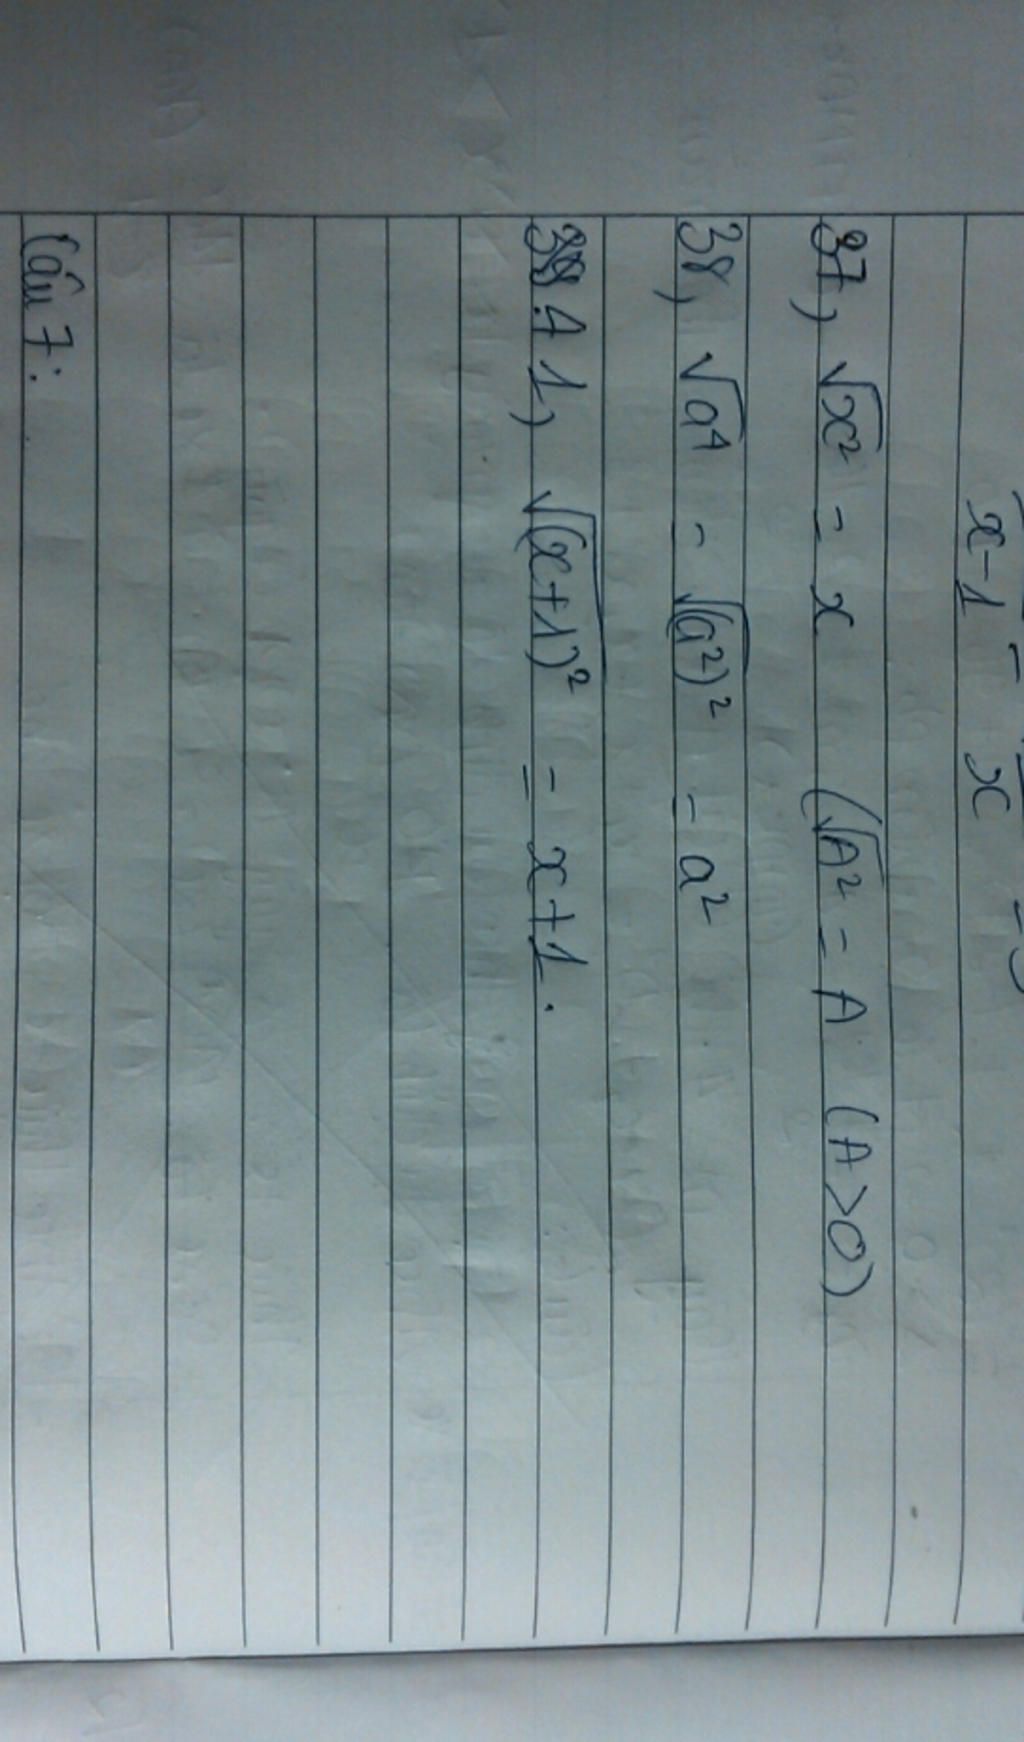 x-1 x
37, √x² = x (√A² = A (A>0)
38, √a⁴ = √(a²)² = a²
1, √(x+1)² = x+1.
Câu 7: